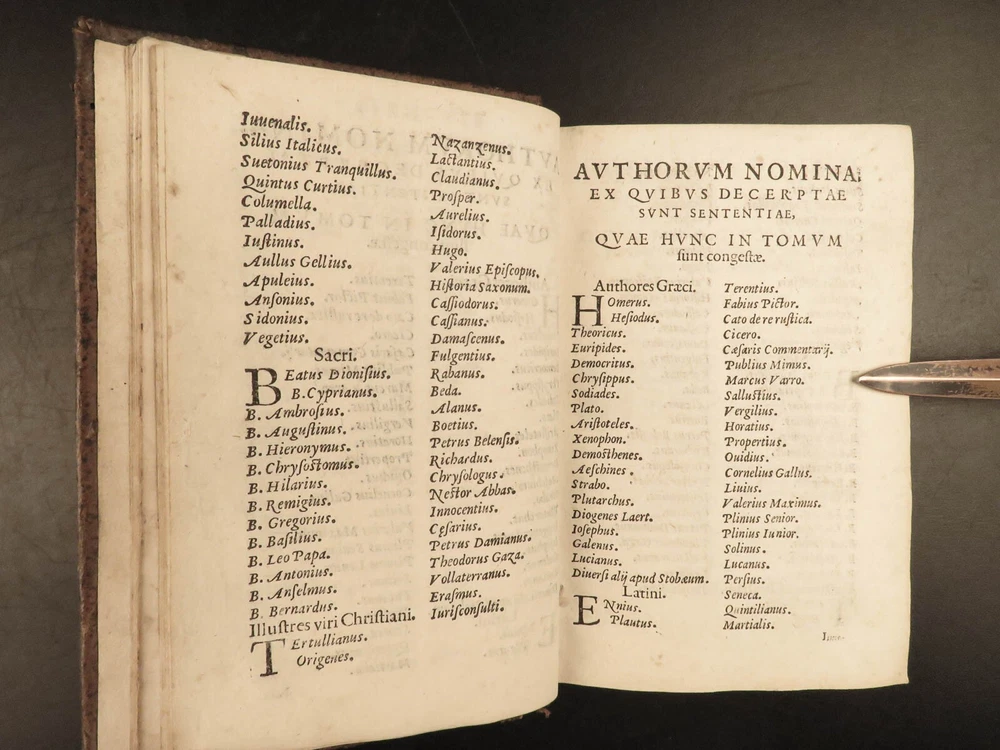 Iuuenalis.
Silius Italicus.
Suetonius Tranquillus.
Quintus Curtius.
Columella.
Palladius.
Iuſtinus.
Aullus Gellius.
Apuleius.
Anſonius.
Sidonius.
Vegetius.
Sacri.
BEatus Dioniſius.
B. Cyprianus.
B. Ambroſius.
B. Auguſtinus.
B. Hieronymus.
B. Chryſoſtomus.
B. Hilarius.
B. Remigius.
B. Gregorius.
B. Baſilius.
B. Leo Papa.
B. Antonius.
B. Anſelmus.
B. Bernardus.
Illuſtres viri Chriſtiani.
TErtullianus.
Origenes.
Nazanzenus.
Lactantius.
Claudianus.
Proſper.
Aurelius.
Iſidorus.
Hugo.
Valerius Epiſcopus.
Hiſtoria Saxonum.
Caſſiodorus.
Caſſianus.
Damaſcenus.
Fulgentius.
Rabanus.
Beda.
Alanus.
Boetius.
Petrus Belenſis.
Richardus.
Chryſologus.
Neſtor Abbas.
Innocentius.
Ceſarius.
Petrus Damianus.
Theodorus Gaza.
Vollaterranus.
Eraſmus.
Iuriſconſulti.
AVTHORVM NOMINA:
EX QVIBVS DECERPTAE
SVNT SENTENTIAE,
QVAE HVNC IN TOMVM
ſunt congeſtæ.
Authores Græci.
HOmerus.
Heſiodus.
Theoricus.
Euripides.
Democritus.
Chryſippus.
Sodiades.
Plato.
Ariſtoteles.
Xenophon.
Demoſthenes.
Aeſchines.
Strabo.
Plutarchus.
Diogenes Laert.
Ioſephus.
Galenus.
Lucianus.
Diuerſi alij apud Stobæum.
Latini.
ENnius.
Plautus.
Terentius.
Fabius Pictor.
Cato de re ruſtica.
Cicero.
Cæſaris Commentarij.
Publius Mimus.
Marcus Varro.
Salluſtius.
Vergilius.
Horatius.
Propertius.
Ouidius.
Cornelius Gallus.
Liuius.
Valerius Maximus.
Plinius Senior.
Plinius Iunior.
Solinus.
Lucanus.
Perſius.
Seneca.
Quintilianus.
Martialis.